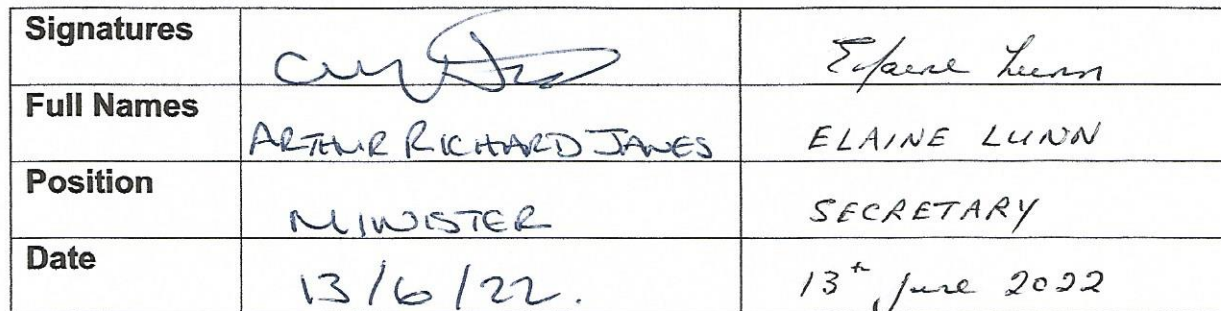 Signatures Elaine Lunn
Full Names ARTHUR RICHARD JAMES ELAINE LUNN
Position MINISTER SECRETARY
Date 13/6/22. 13th June 2022